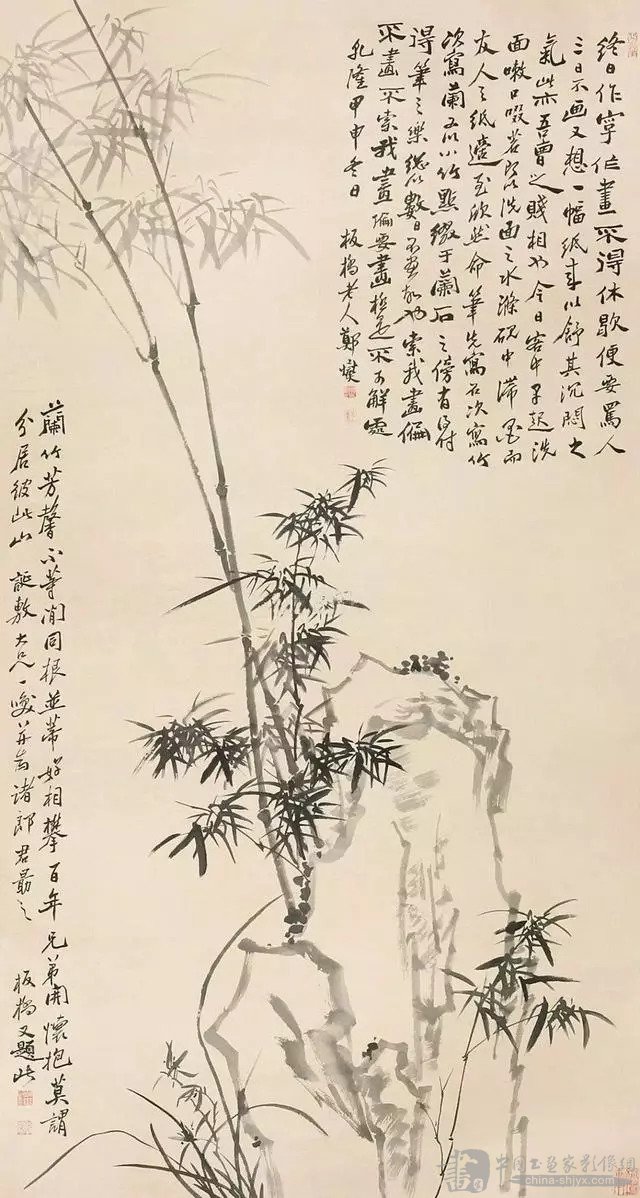 終日作字作畫不得休歇便要罵人
三日不画又想一幅紙来以舒其沉悶之
氣此亦吾曹之賤相也今日客中早起洗
面嗽口啜茗即以洗面之水滌硯中滞墨而
友人之紙適至欣然命筆先寫石次寫竹
次寫蘭又以小竹點綴于蘭石之傍有
得筆之樂総以數日不画故也索我畫偏
不畫不索我畫偏要畫極是不可解處
乾隆甲申冬日 板橋老人鄭燮
蘭竹芳馨不等閒同根並蒂好相攀百年兄弟開懷抱莫謂
分居彼此山 誕敷大兄一咲并 諸郎君勗之
板橋又題此
中国书画家影像網
china-shjyx.com